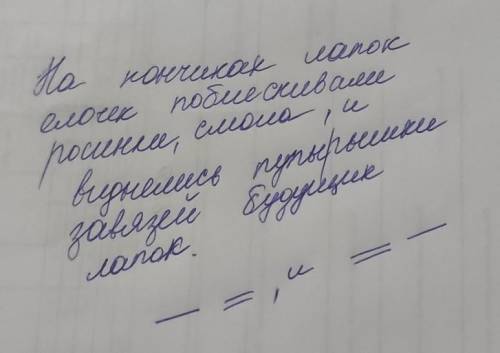 На кончиках лапок
елочек поблескивали
росинки, смола, и
виднелись пупырышки
завязей будущих
лапок.
— =, и = —